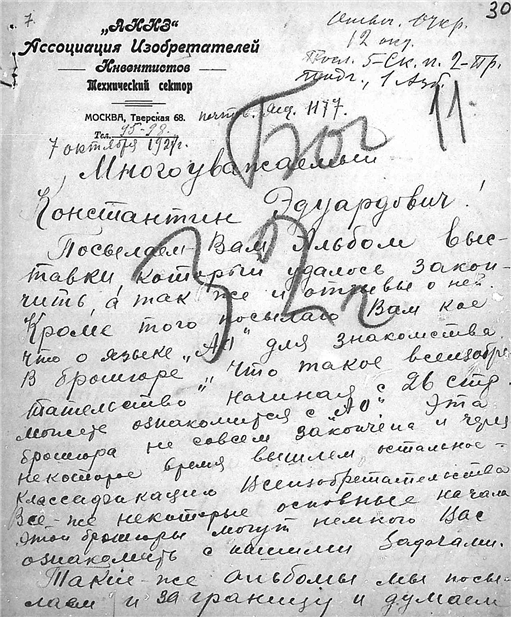 7.
30
„АИИЗ"
Ассоциация Изобретателей
Инвентистов
Технический сектор
МОСКВА, Тверская 68.
Тел. 95-28.
12 окт.
1177.
11
7 октября 1927г.
Многоуважаемый
Константин Эдуардович!
Посылаем Вам Альбом выс-
тавки, который удалось закон-
чить, а так же и отзывы о ней.
Кроме того посылаю Вам кое
что о языке „АО" для знакомства.
В брошюре „Что такое всеизобре-
тательство" начиная с 26 стр.
можете ознакомится с „АО". Эта
брошюра не совсем закончена и через
некоторое время вышлем остальное-
классафикацию Всеизобретательства
Все-же некоторые основные начала
этой брошюры могут немного Вас
ознакомить с нашими задачами.
Такие-же альбомы мы посы-
лаем и за границу и думаем